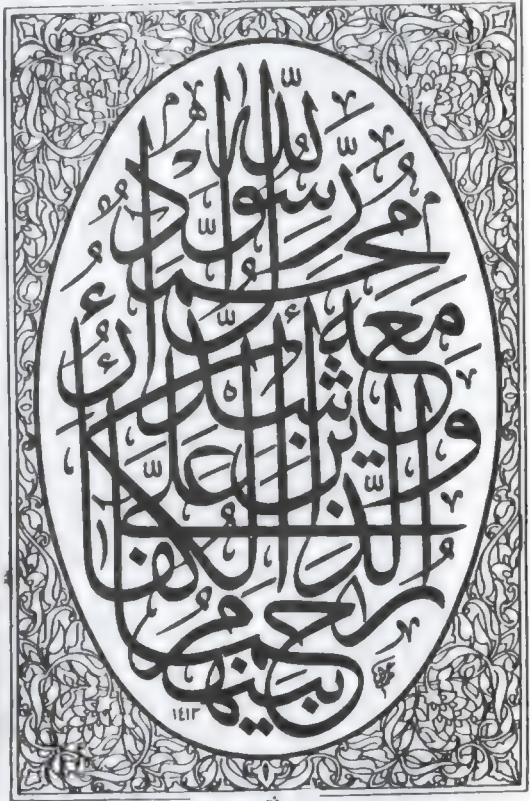 مُحَمَّدٌ رَّسُولُ اللّٰهِ
وَالَّذِينَ مَعَهُ أَشِدَّاءُ
عَلَى الْكُفَّارِ
رُحَمَاءُ بَيْنَهُمْ
١٤١٣